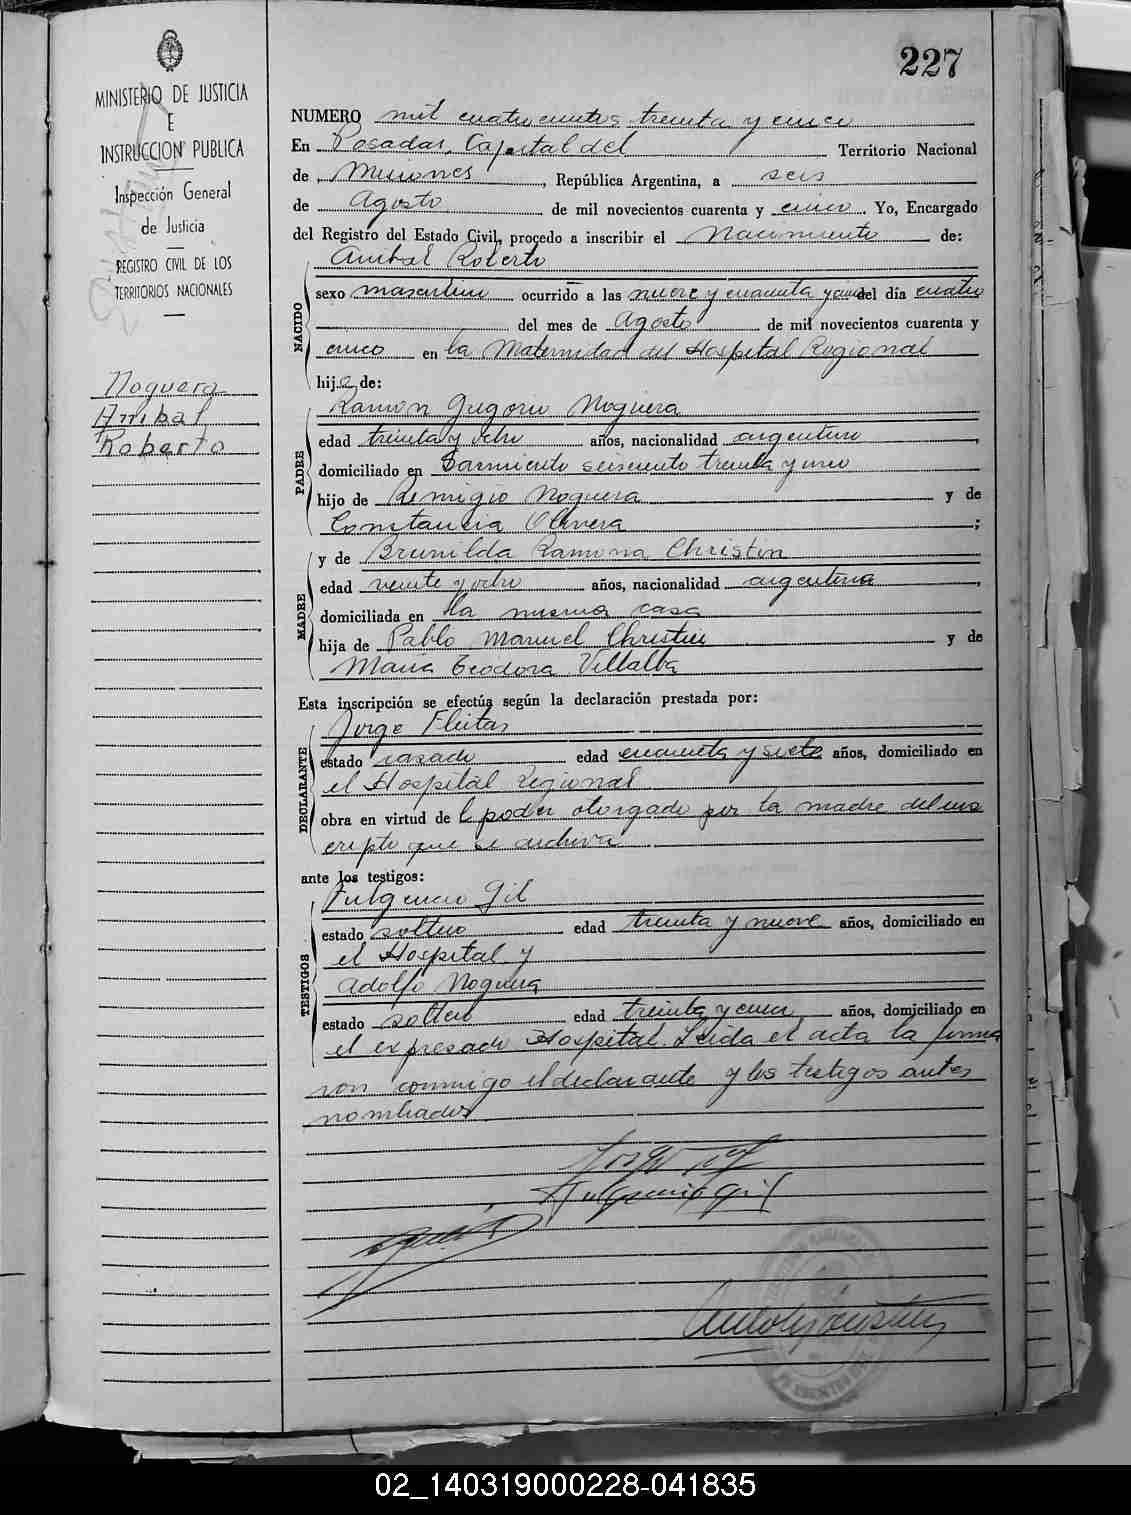 227
MINISTERIO DE JUSTICIA
E
INSTRUCCION PUBLICA
Inspección General
de Justicia
REGISTRO CIVIL DE LOS
TERRITORIOS NACIONALES
Noguera
Anibal
Roberto
NUMERO mil cuatrocientos treinta y cinco
En Posadas, Capital del Territorio Nacional
de Misiones, República Argentina, a seis
de Agosto de mil novecientos cuarenta y cinco. Yo, Encargado
del Registro del Estado Civil, procedo a inscribir el Nacimiento de:
Anibal Roberto
NACIDO
sexo masculino ocurrido a las nueve y cincuenta y cinco del día cuatro
del mes de Agosto de mil novecientos cuarenta y
cinco en la Maternidad del Hospital Regional
hijo de:
Ramon Gregorio Noguera
PADRE
edad treinta y ocho años, nacionalidad argentino,
domiciliado en Sarmiento seisciento treinta y uno
hijo de Remigio Noguera y de
Constancia Olivera;
y de Brunilda Ramona Christin
MADRE
edad veinte y ocho años, nacionalidad argentina,
domiciliada en la misma casa
hija de Pablo Manuel Christin y de
Maria Teodora Villalba
Esta inscripción se efectúa según la declaración prestada por:
Jorge Fleitas
DECLARANTE
estado casado edad cuarenta y siete años, domiciliado en
el Hospital Regional
obra en virtud de l poder otorgado por la madre del ins
cripto que se archiva
ante los testigos:
Fulgencio Gil
TESTIGOS
estado soltero edad treinta y nueve años, domiciliado en
el Hospital y
Adolfo Noguera
estado soltero edad treinta y cinco años, domiciliado en
el expresado Hospital. Leida el acta la firma
ron conmigo el declarante y los testigos antes
nombrados
Fulgencio Gil
02_140319000228-041835